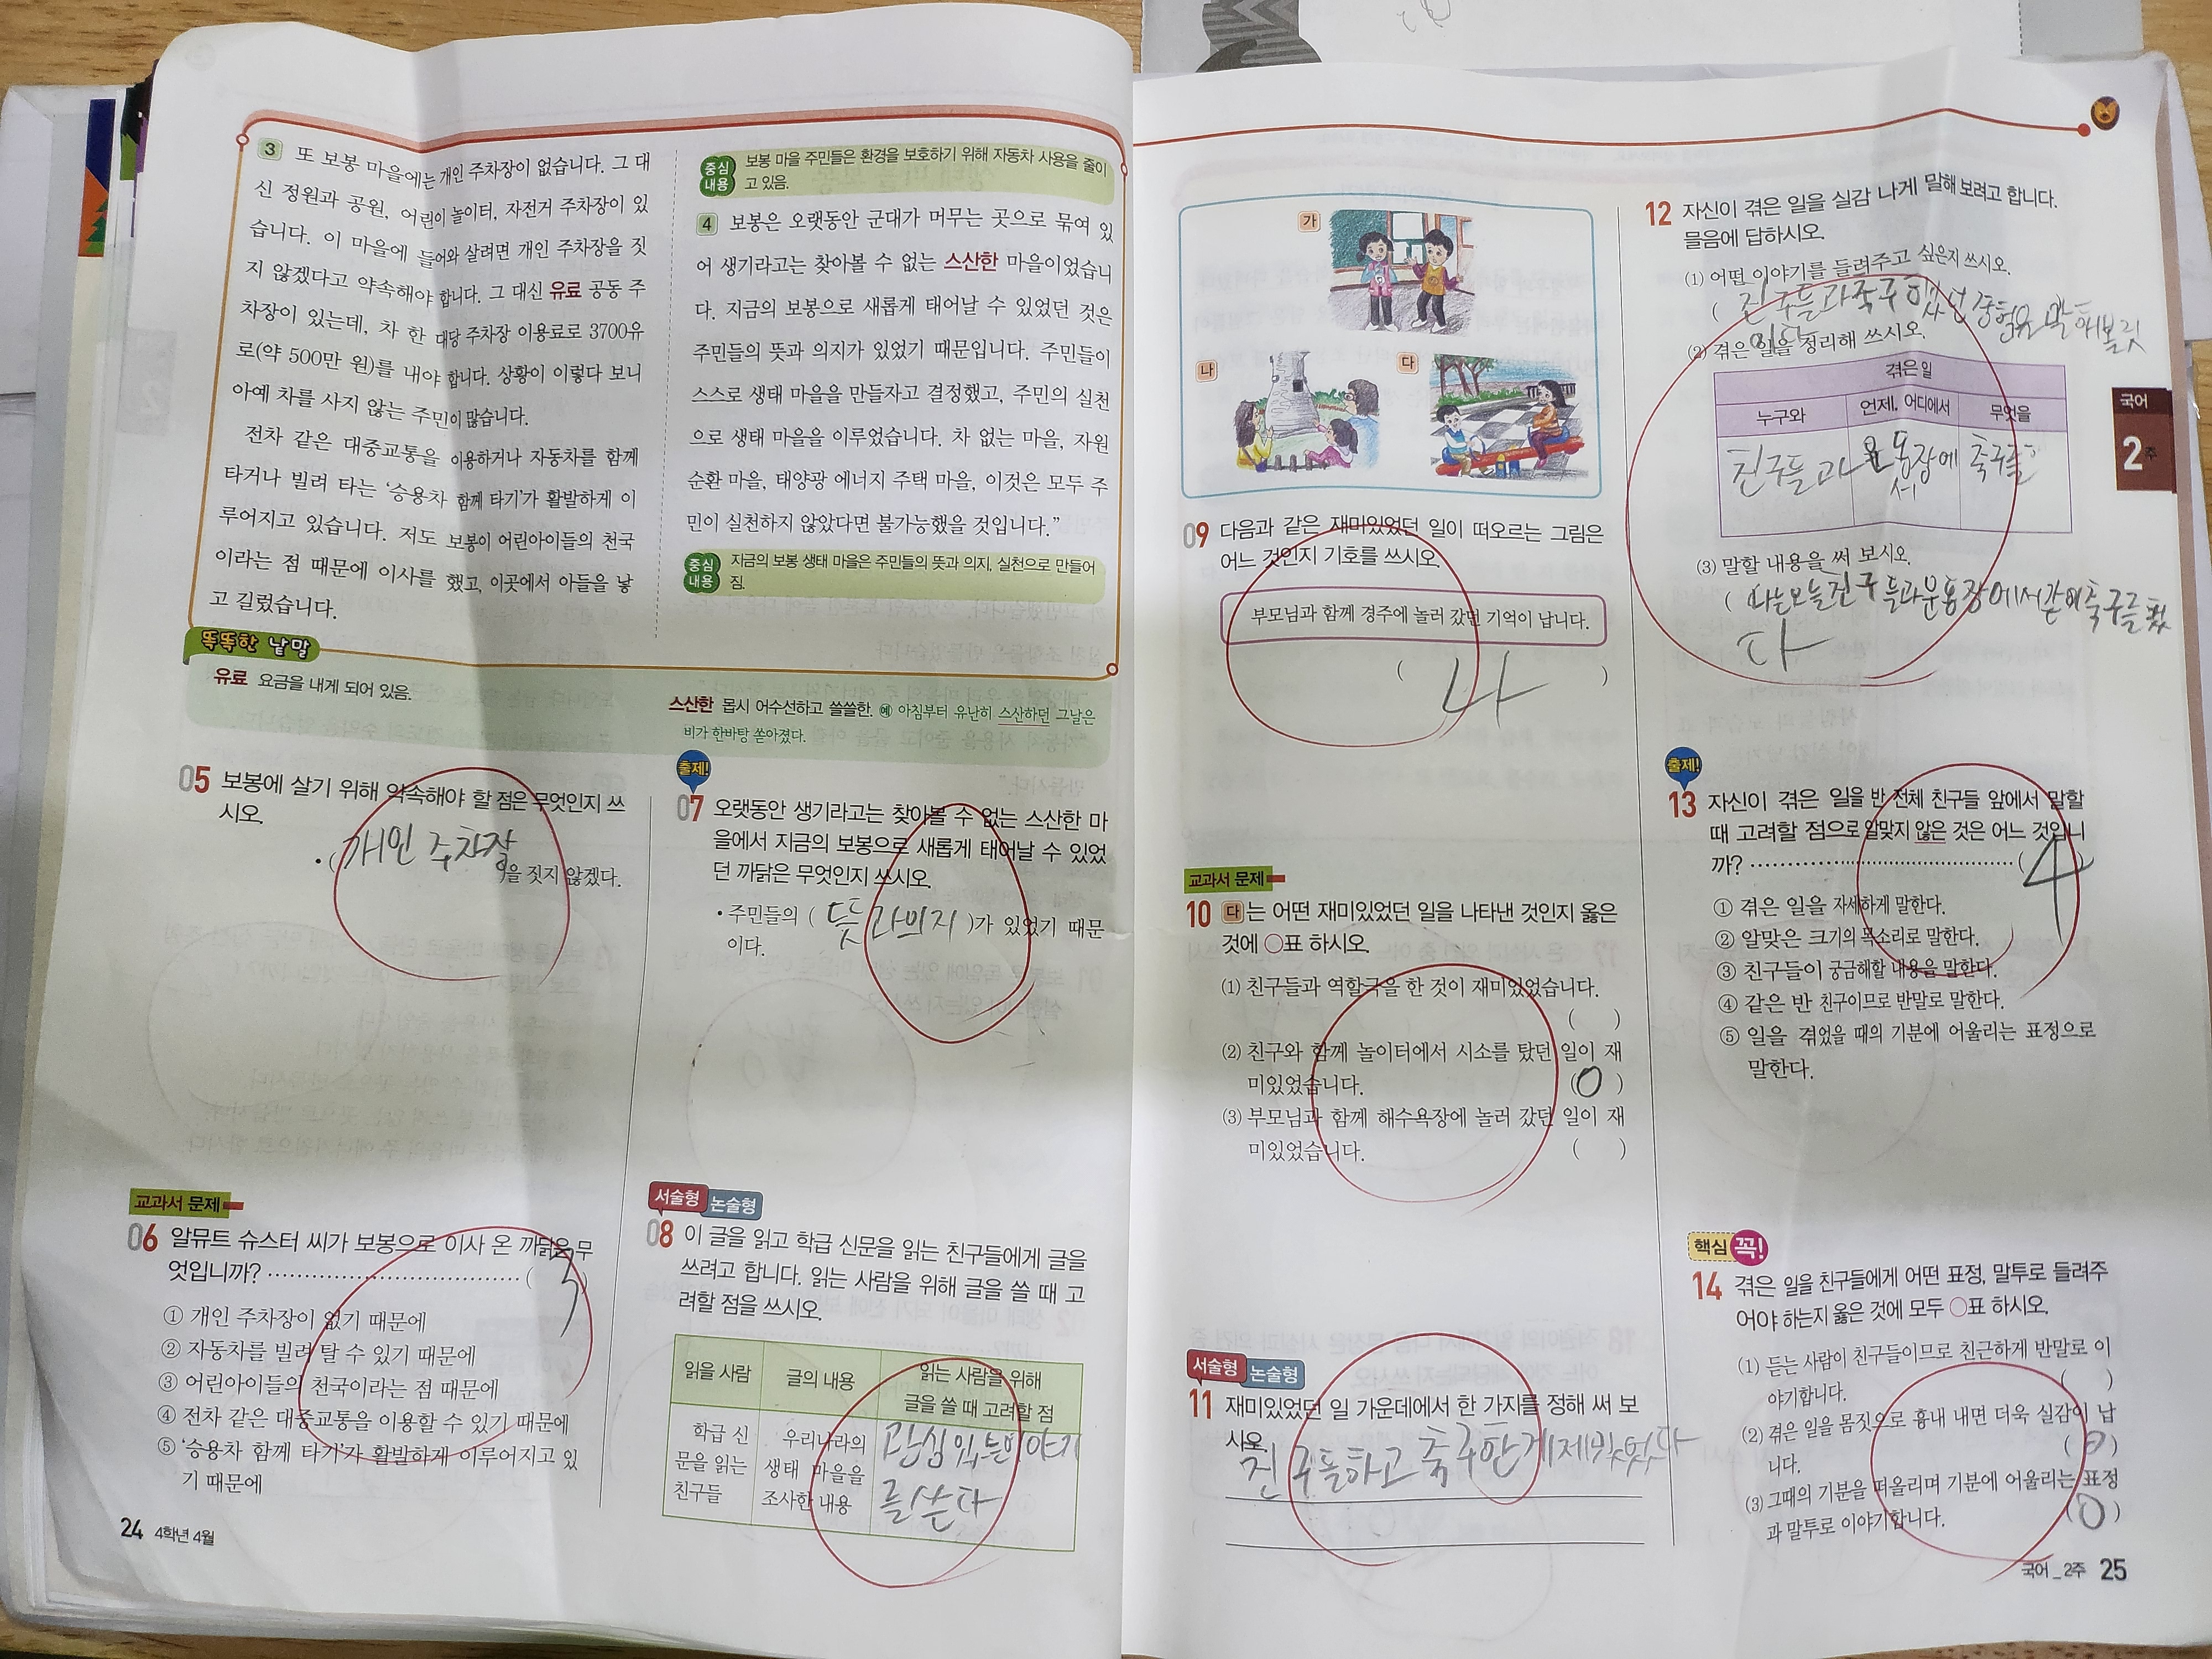 3 또 보봉 마을에는 개인 주차장이 없습니다. 그 대
신 정원과 공원, 어린이 놀이터, 자전거 주차장이 있
습니다. 이 마을에 들어와 살려면 개인 주차장을 짓
지 않겠다고 약속해야 합니다. 그 대신 유료 공동 주
차장이 있는데, 차 한 대당 주차장 이용료로 3700유
로(약 500만 원)를 내야 합니다. 상황이 이렇다 보니
아예 차를 사지 않는 주민이 많습니다.
전차 같은 대중교통을 이용하거나 자동차를 함께
타거나 빌려 타는 ‘승용차 함께 타기’가 활발하게 이
루어지고 있습니다. 저도 보봉이 어린아이들의 천국
이라는 점 때문에 이사를 했고, 이곳에서 아들을 낳
고 길렀습니다.
중심 내용 보봉 마을 주민들은 환경을 보호하기 위해 자동차 사용을 줄이
고 있음.
4 보봉은 오랫동안 군대가 머무는 곳으로 묶여 있
어 생기라고는 찾아볼 수 없는 스산한 마을이었습니
다. 지금의 보봉으로 새롭게 태어날 수 있었던 것은
주민들의 뜻과 의지가 있었기 때문입니다. 주민들이
스스로 생태 마을을 만들자고 결정했고, 주민의 실천
으로 생태 마을을 이루었습니다. 차 없는 마을, 자원
순환 마을, 태양광 에너지 주택 마을, 이것은 모두 주
민이 실천하지 않았다면 불가능했을 것입니다.”
중심 내용 지금의 보봉 생태 마을은 주민들의 뜻과 의지, 실천으로 만들어
짐.
똑똑한 낱말
유료 요금을 내게 되어 있음.
스산한 몹시 어수선하고 쓸쓸한. 예 아침부터 유난히 스산하던 그날은
비가 한바탕 쏟아졌다.
05 보봉에 살기 위해 약속해야 할 점은 무엇인지 쓰
시오.
• ( 개인 주차장 )을 짓지 않겠다.
교과서 문제
06 알뮤트 슈스터 씨가 보봉으로 이사 온 까닭은 무
엇입니까? ( 3 )
① 개인 주차장이 없기 때문에
② 자동차를 빌려 탈 수 있기 때문에
③ 어린아이들의 천국이라는 점 때문에
④ 전차 같은 대중교통을 이용할 수 있기 때문에
⑤ ‘승용차 함께 타기’가 활발하게 이루어지고 있
기 때문에
출제!
07 오랫동안 생기라고는 찾아볼 수 없는 스산한 마
을에서 지금의 보봉으로 새롭게 태어날 수 있었
던 까닭은 무엇인지 쓰시오.
• 주민들의 ( 뜻과의지 )가 있었기 때문
이다.
서술형 논술형
08 이 글을 읽고 학급 신문을 읽는 친구들에게 글을
쓰려고 합니다. 읽는 사람을 위해 글을 쓸 때 고
려할 점을 쓰시오.
읽을 사람 글의 내용 읽는 사람을 위해
글을 쓸 때 고려할 점
학급 신
문을 읽는
친구들
우리나라의
생태 마을을
조사한 내용
관심있는이야기
를쓴다
24 4학년 4월
가
나
다
09 다음과 같은 재미있었던 일이 떠오르는 그림은
어느 것인지 기호를 쓰시오.
부모님과 함께 경주에 놀러 갔던 기억이 납니다.
( 나 )
교과서 문제
10 다는 어떤 재미있었던 일을 나타낸 것인지 옳은
것에 ○표 하시오.
(1) 친구들과 역할극을 한 것이 재미있었습니다.
( )
(2) 친구와 함께 놀이터에서 시소를 탔던 일이 재
미있었습니다. ( O )
(3) 부모님과 함께 해수욕장에 놀러 갔던 일이 재
미있었습니다. ( )
서술형 논술형
11 재미있었던 일 가운데에서 한 가지를 정해 써 보
시오.
친구들하고 축구한게제밌었다
12 자신이 겪은 일을 실감 나게 말해 보려고 합니다.
물음에 답하시오.
(1) 어떤 이야기를 들려주고 싶은지 쓰시오.
( 친구들과축구했던 말해볼것
(2) 겪은 일을 정리해 쓰시오.
겪은 일
누구와 언제, 어디에서 무엇을
친구들과 운동장에서 축구를
(3) 말할 내용을 써 보시오.
( 나는오늘친구들과운동장에서같이축구를했
다
출제!
13 자신이 겪은 일을 반 전체 친구들 앞에서 말할
때 고려할 점으로 알맞지 않은 것은 어느 것입니
까? ( 4 )
① 겪은 일을 자세하게 말한다.
② 알맞은 크기의 목소리로 말한다.
③ 친구들이 궁금해할 내용을 말한다.
④ 같은 반 친구이므로 반말로 말한다.
⑤ 일을 겪었을 때의 기분에 어울리는 표정으로
말한다.
핵심 꼭!
14 겪은 일을 친구들에게 어떤 표정, 말투로 들려주
어야 하는지 옳은 것에 모두 ○표 하시오.
(1) 듣는 사람이 친구들이므로 친근하게 반말로 이
야기합니다. ( )
(2) 겪은 일을 몸짓으로 흉내 내면 더욱 실감이 납
니다. ( O )
(3) 그때의 기분을 떠올리며 기분에 어울리는 표정
과 말투로 이야기합니다. ( O )
국어
2주
국어_2주 25